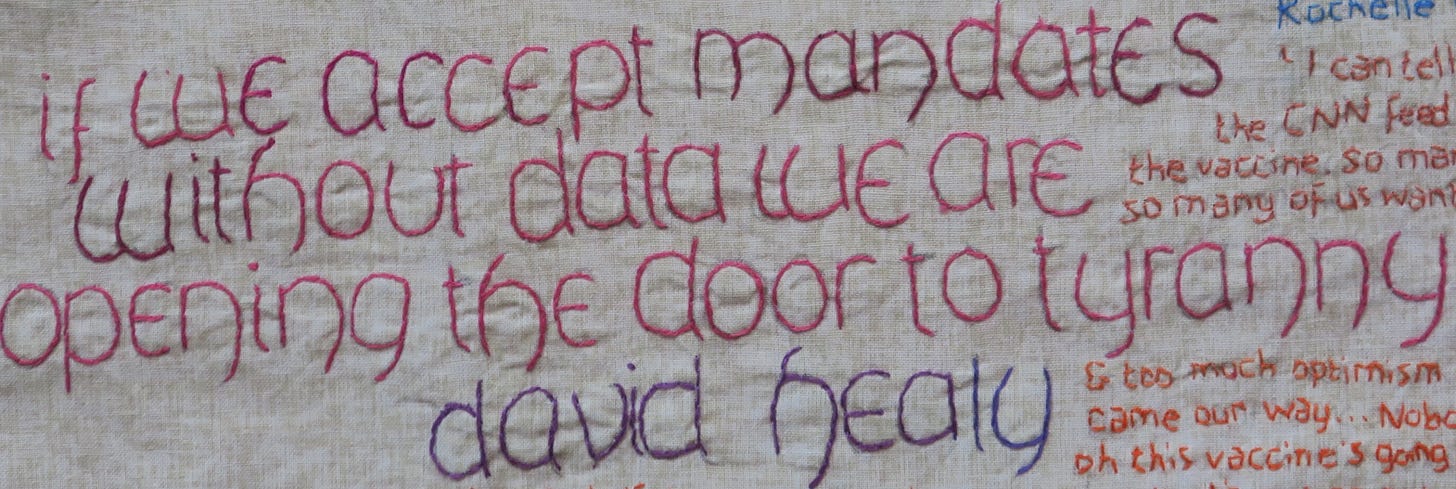 if we accept mandates
without data we are
opening the door to tyranny
david healy
Rochelle
"I can tell
the CNN feed
the vaccine. so ma
so many of us want
& too much optimism
came our way... Nobo
oh this vaccine's going